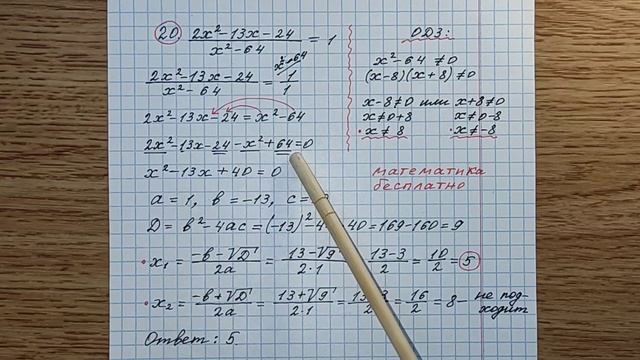 20. 2x²-13x-24 / x²-64 = 1
2x²-13x-24 / x²-64 = 1 / 1 x²-64
2x²-13x-24 = x²-64
2x²-13x-24-x²+64=0
x²-13x+40=0
a=1, b=-13, c=
D=b²-4ac=(-13)²-4 40=169-160=9
x₁ = -b-√D / 2a = 13-√9 / 2·1 = 13-3 / 2 = 10 / 2 = 5
x₂ = -b+√D / 2a = 13+√9 / 2·1 = 13+3 / 2 = 16 / 2 = 8 - не под-
ходит
Ответ: 5.
ОДЗ:
x²-64 ≠0
(x-8)(x+8)≠0
x-8≠0 или x+8≠0
x≠0+8 x≠0-8
x≠8 x≠-8
математика
бесплатно